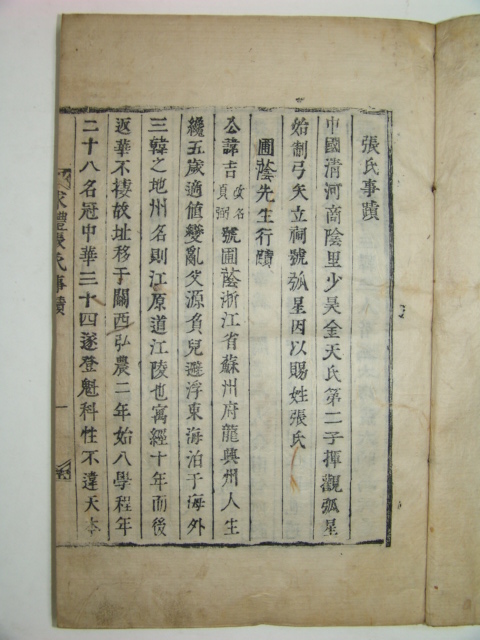 張氏事蹟
中國清河商陰里少昊金天氏第二子揮觀弧星
始制弓矢立祠號弧星因以賜姓張氏
圃蔭先生行蹟
公諱吉改名貞弼號圃蔭浙江省蘇州府龍興州人生
纔五歲適値變亂父源負兒避浮東海泊于海外
三韓之地州名則江原道江陵也寓經十年而後
返華不棲故址移于關西弘農二年始入學程年
二十八名冠中華三十四遂登魁科性不違天本
家禮張氏事蹟
一